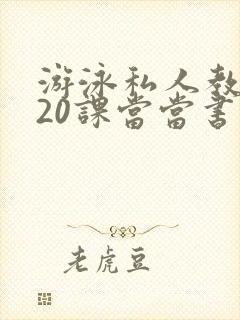 游泳私人教
20課當當書
老虎豆